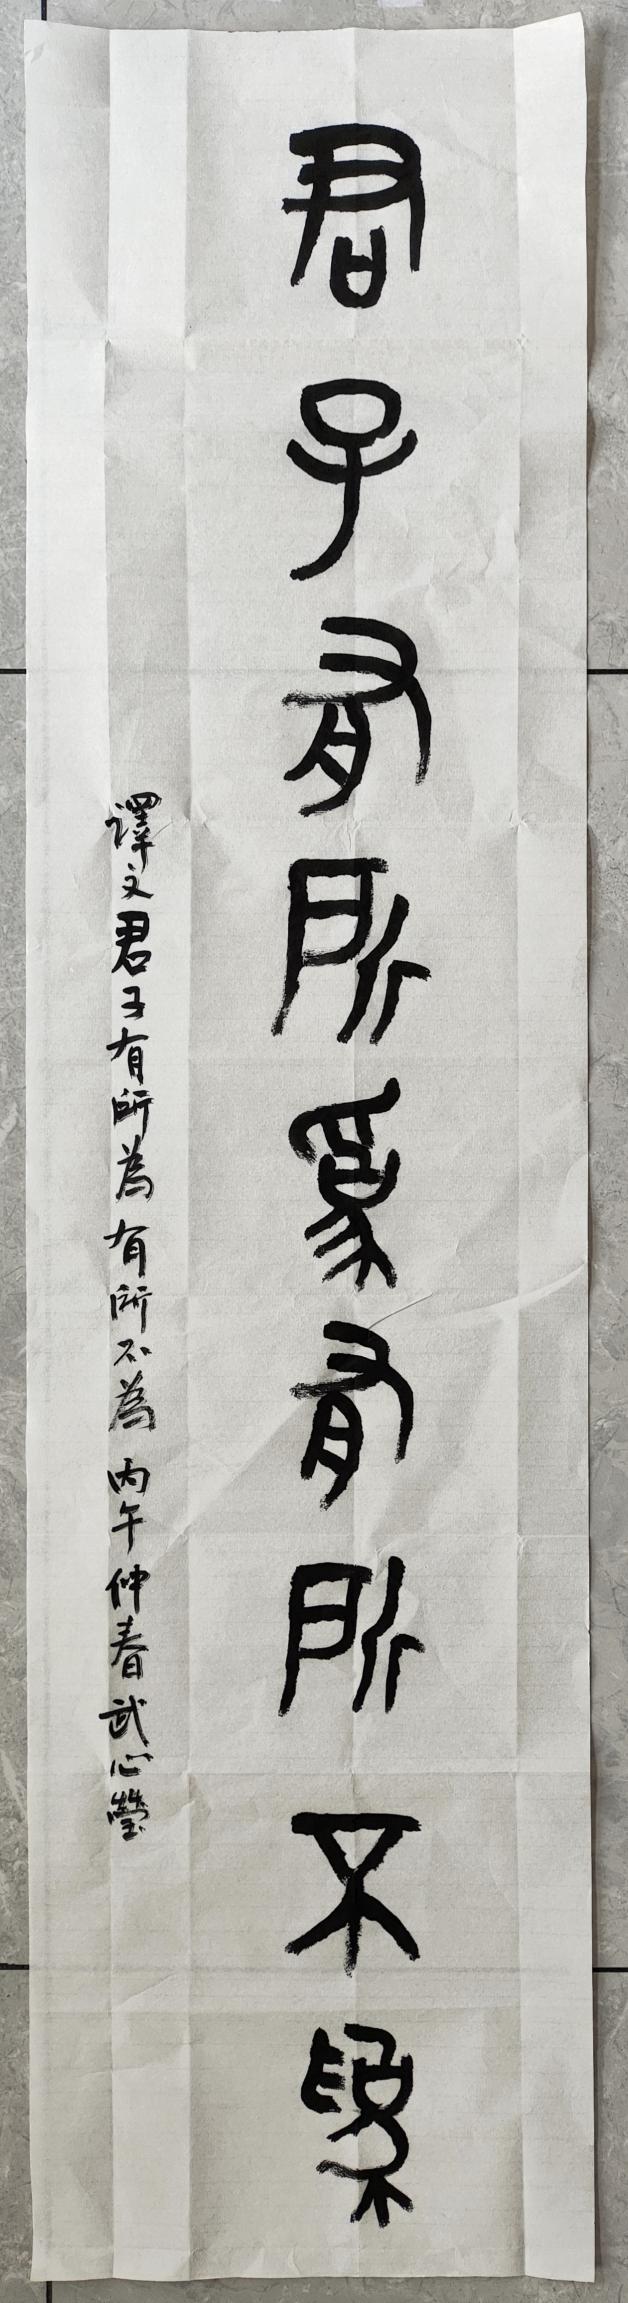 君子有所爲有所不爲
譯文君子有所為有所不為 丙午仲春武心瑩